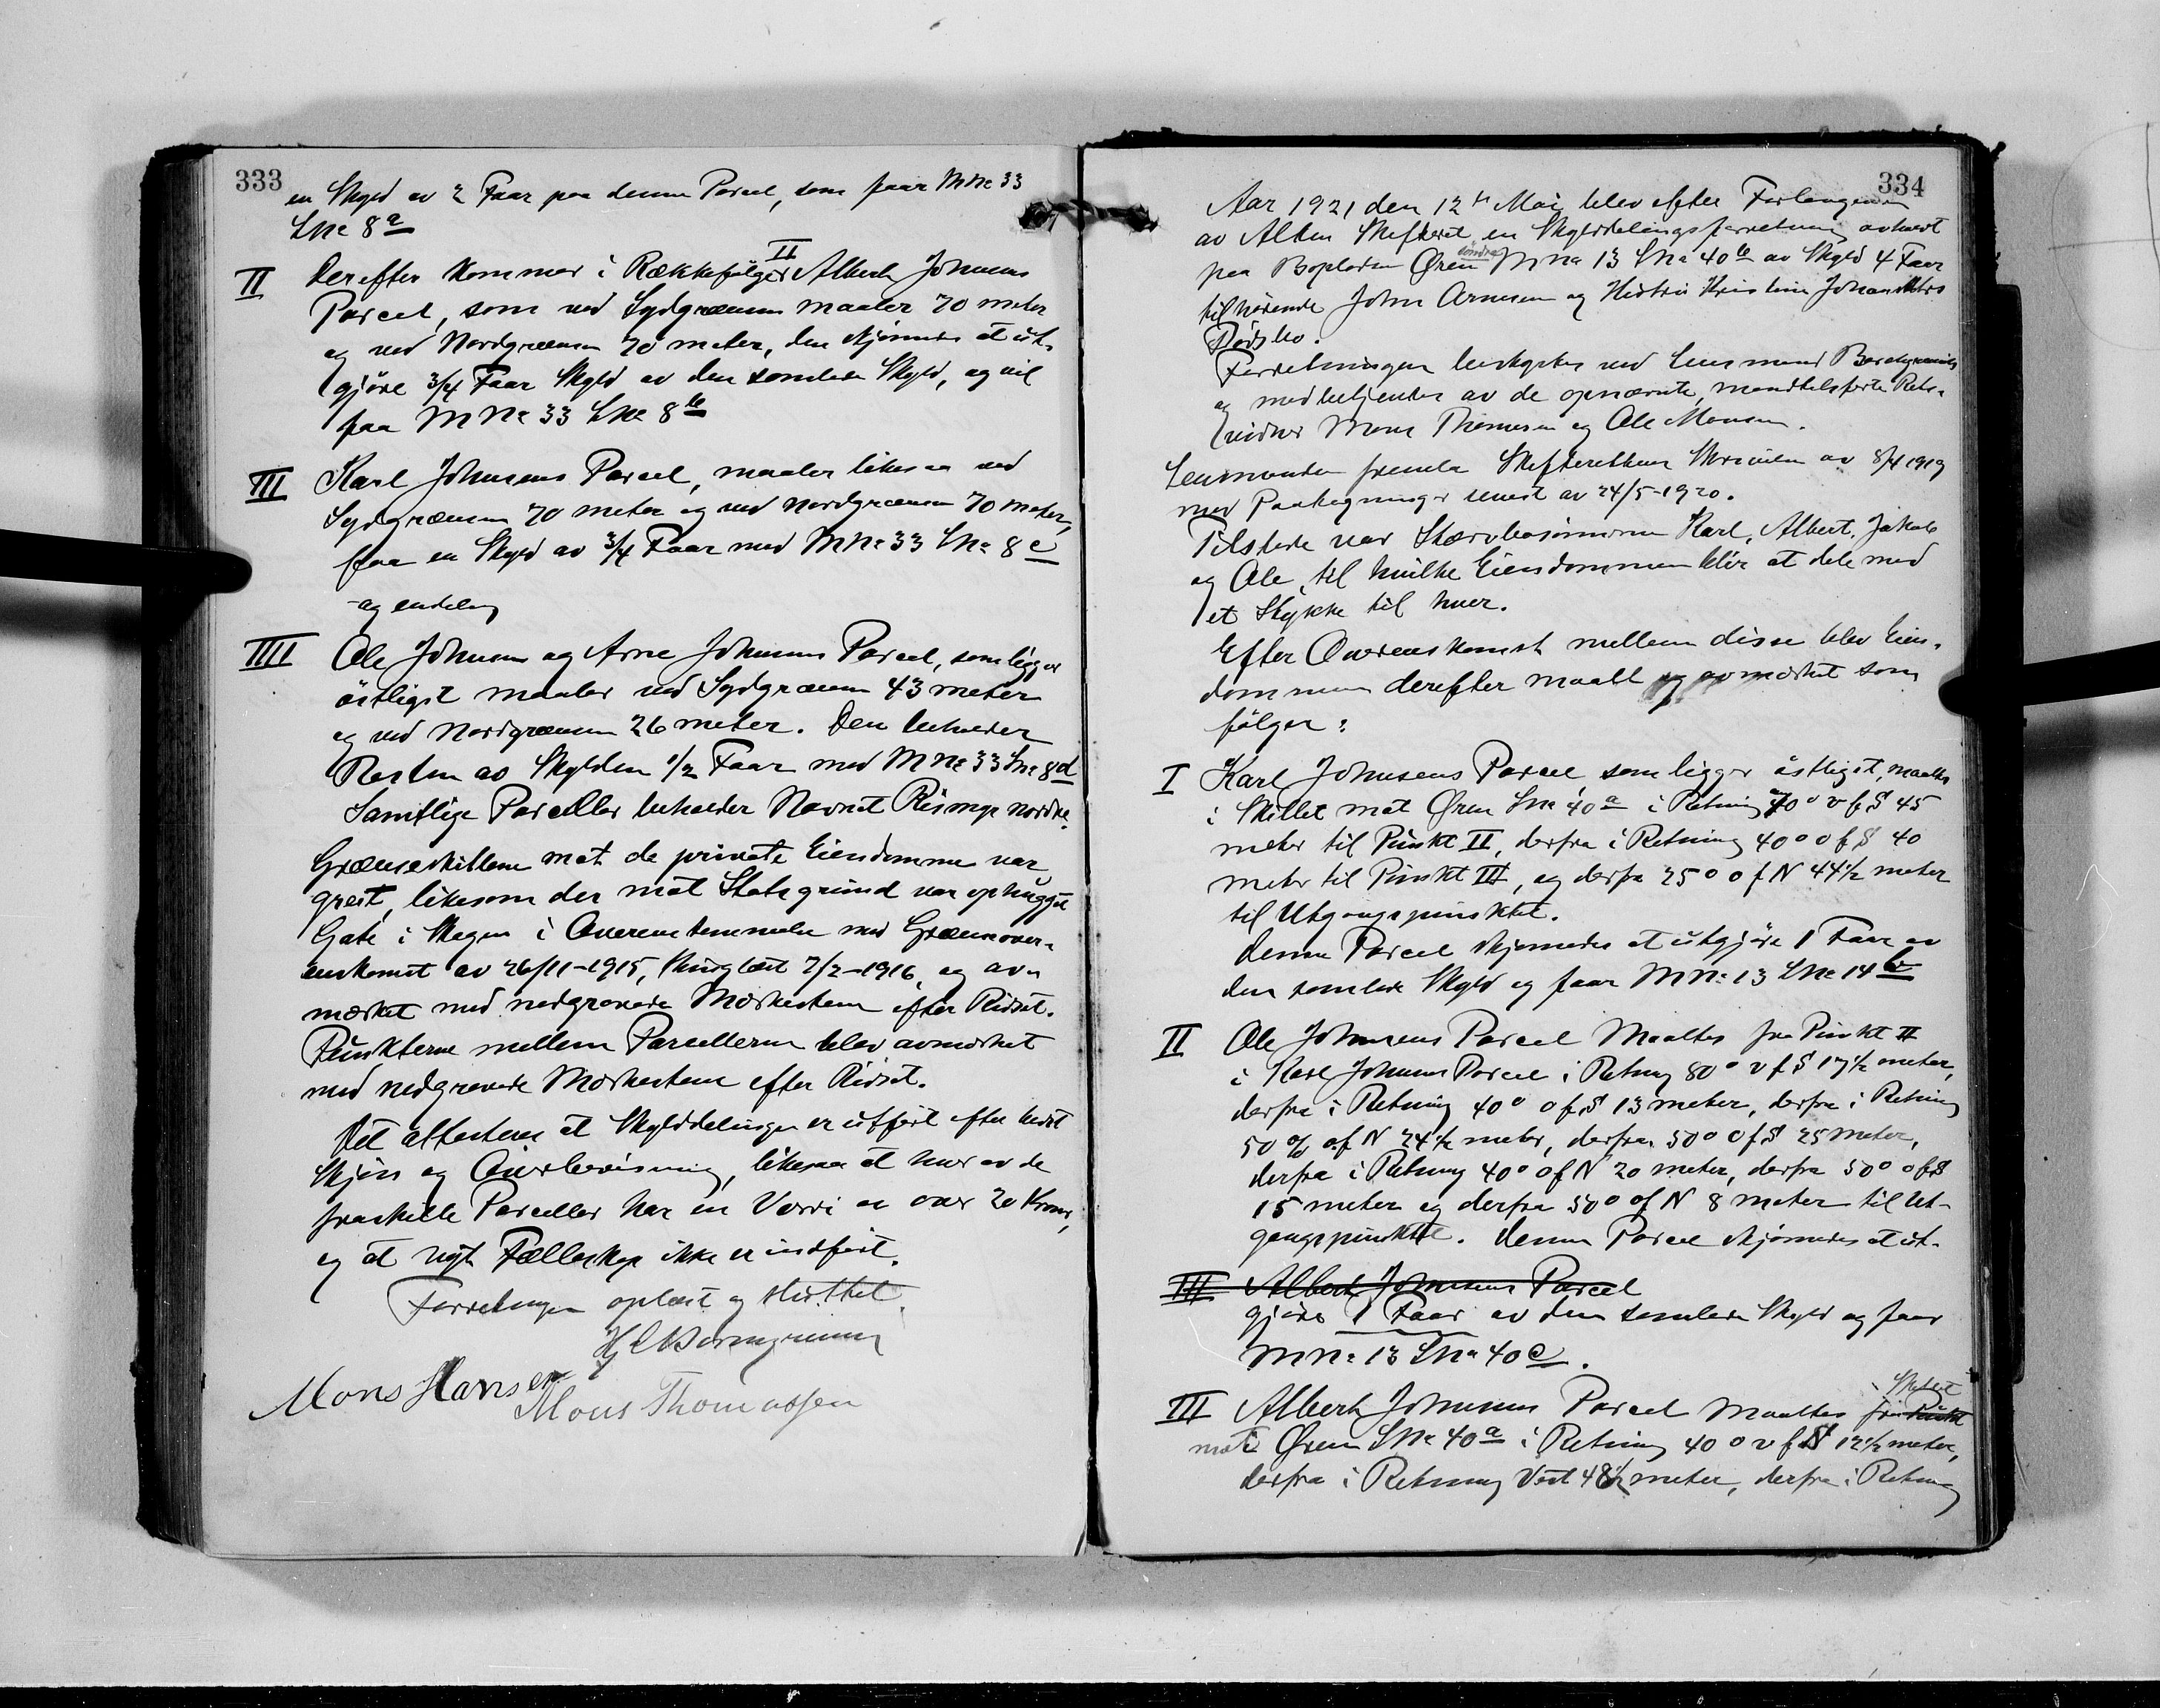 333
en Skyld av 2 Faar paa denne Parcel, som faar M No 33
L No 8 a
II Derefter kommer i Rækkefølgen II Albert Johnsens
Parcel, som ved Sydgrænsen maaler 70 meter
og ved Nordgrænsen 70 meter, den skjønnes at ut-
gjöre 3/4 Faar Skyld av den samlede Skyld, og vil
faa M No 33 L No 8 b
III Karl Johnsens Parcel, maaler likesaa ved
Sydgrænsen 70 meter og ved Nordgrænsen 70 meter,
faar en Skyld av 3/4 Faar med M No 33 L No 8 c
- og endelig
IIII Ole Johnsens og Arne Johnsens Parcel, som ligger
östligst maaler ved Sydgrænsen 43 meter
og ved Nordgrænsen 26 meter. Den beholder
Resten av Skylden 1/2 Faar med M No 33 L No 8 d
Samtlige Parceller beholder Navnet Rismyr nordre.
Grænseskillene mot de private Eiendomme var
greit, likesom der mot Statsgrund var ophugget
Gate i Skogen i Overenstemmelse med Grænseover-
enskomst av 26/11-1915, thinglæst 7/2-1916, og av-
mærket med nedgravede Mærkestene efter Ridset.
Punkterne mellem Parcellerne blev avmærket
med nedgravede Mærkestene efter Ridset.
Det attesteres at Skylddelingen er utfört efter bedste
Skjön og Overbevisning, likesaa at hver av de
fraskilte Parceller har en Værdi av over 20 Kroner,
og at nyt Fælleskap ikke er indfört.
Forretningen oplæst og sluttet.
Mons Hansen
Mons Thomassen
334
Aar 1921 den 12te Mai blev efter Forlangende
av Alten Skifteret en Skylddelingsforretning avholdt
paa Bopladsen Ören söndre M No 13 L No 40 b av Skyld 4 Faar
tilhörende John Arnesen og Hustru Kristine Johansdatters
Dödsbo.
Forretningen bestyrtes ved Lensmand
og medbetjentes av de opnævnte, mandtalsförte Rets-
vidner Mons Thomesen og Ole Monsen.
Lensmanden fremla Skifterettens Skrivelse av 8/4 1919
med Paategninger senest av 24/5-1920.
Tilstede var Stervbosönnerne Karl, Albert, Jakob
og Ole, til hvilke Eiendommen blir at dele med
et Stykke til hver.
Efter Overenskomst mellem disse blev Eien-
dommen derefter maalt og avmærket som
fölger:
I Karl Johnsens Parcel, som ligger östligst, maaltes
i Skillet mot Ören L No 40 a i Retning 40° v f S 45
meter til Punkt II, derfra i Retning 40° o f S 40
meter til Punkt III, og derfra 25° o f N 44 1/2 meter
til Utgangspunktet.
Denne Parcel skjönnedes at utgjöre 1 Faar av
den samlede Skyld og faar M No 13 L No 14 b
II Ole Johnsens Parcel Maaltes fra Punkt II
i Karl Johnsens Parcel i Retning 80° v f S 17 1/2 meter,
derfra i Retning 40° o f S 13 meter, derfra i Retning
50° o f N 24 1/2 meter, derfra 50° o f S 25 meter,
derfra i Retning 40° o f N 20 meter, derfra 50° o f S
15 meter og derfra 50° o f N 8 meter til Ut-
gangspunktet. Denne Parcel skjönnedes at ut-
III Albert Johnsens Parcel
gjöre 1 Faar av den samlede Skyld og faar
M No 13 L No 40 c.
III Albert Johnsens Parcel Maaltes fra Punkt i Skillet
mot Ören L No 40 a i Retning 40° v f S 12 1/2 meter,
derfra i Retning Vest 48 1/2 meter, derfra i Retning